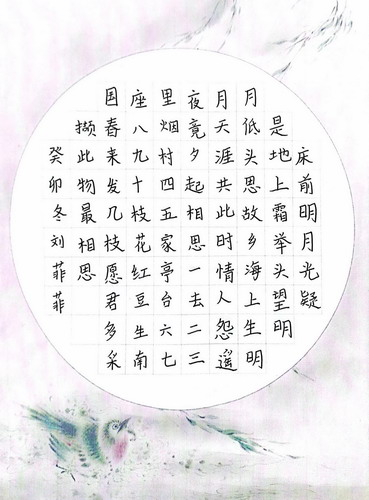 床前明月光疑
是地上霜举头望明
月低头思故乡海上生明
月天涯共此时情人怨遥
夜竟夕起相思一去二三
里烟村四五家亭台六七
座八九十枝花红豆生南
国春来发几枝愿君多采
撷此物最相思
癸卯冬刘菲菲